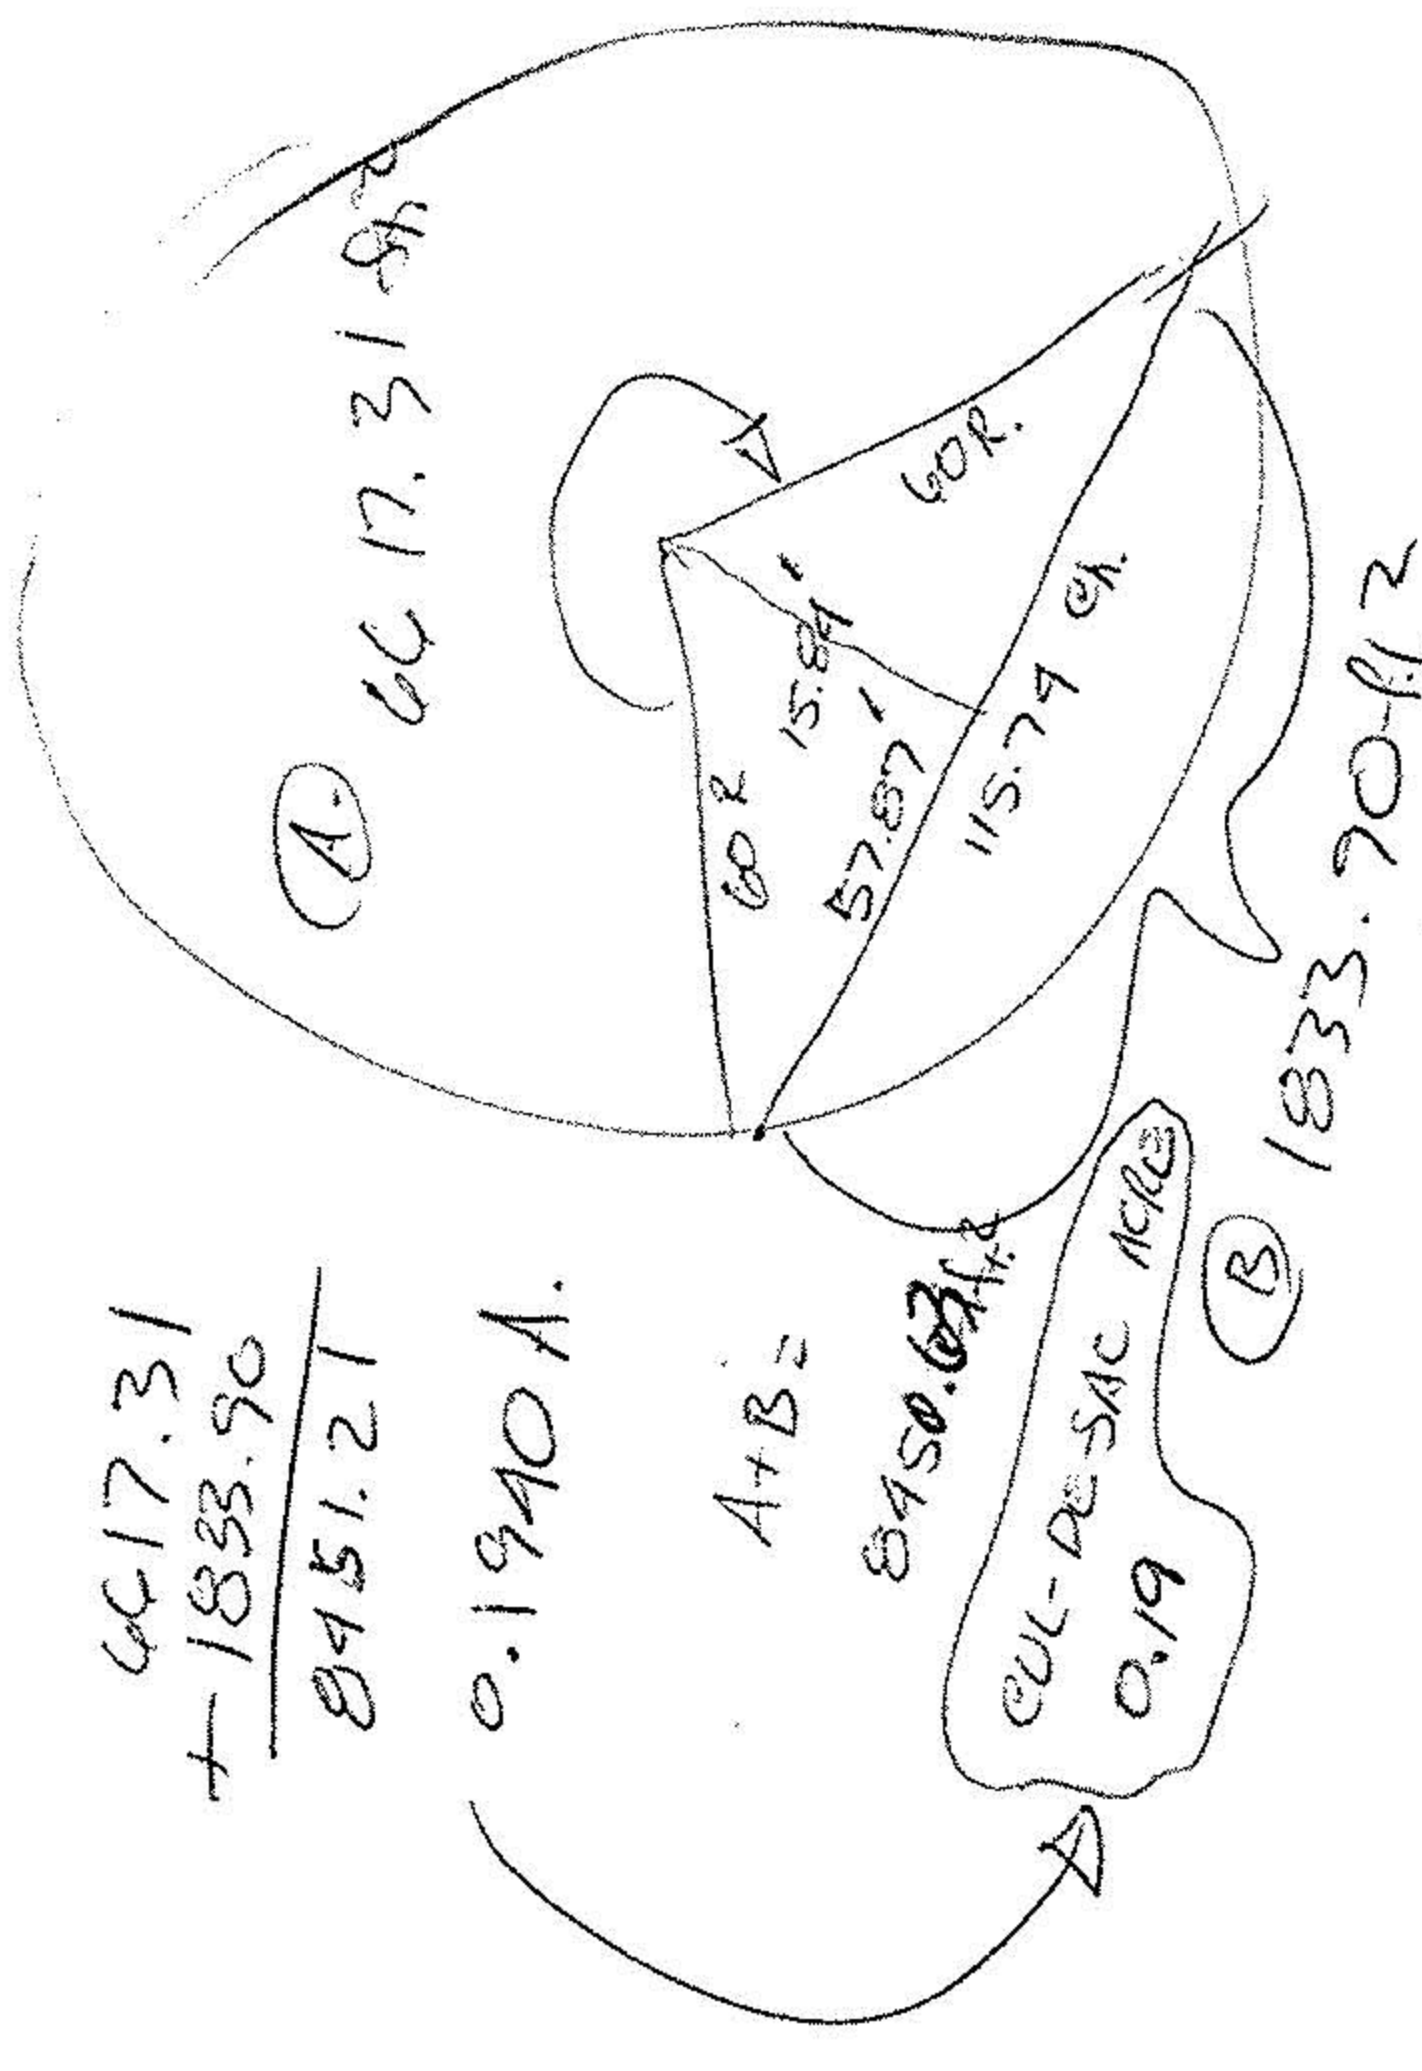 6617.31
+ 1833.90
8451.21
0.1940 A.
A+B =
8450.63 ft.2
CUL-DE-SAC ACRE
0.19
A.
6617.31 ft2
60 R
60R.
15.84'
57.87'
115.74 Ch.
B
1833.90 ft2